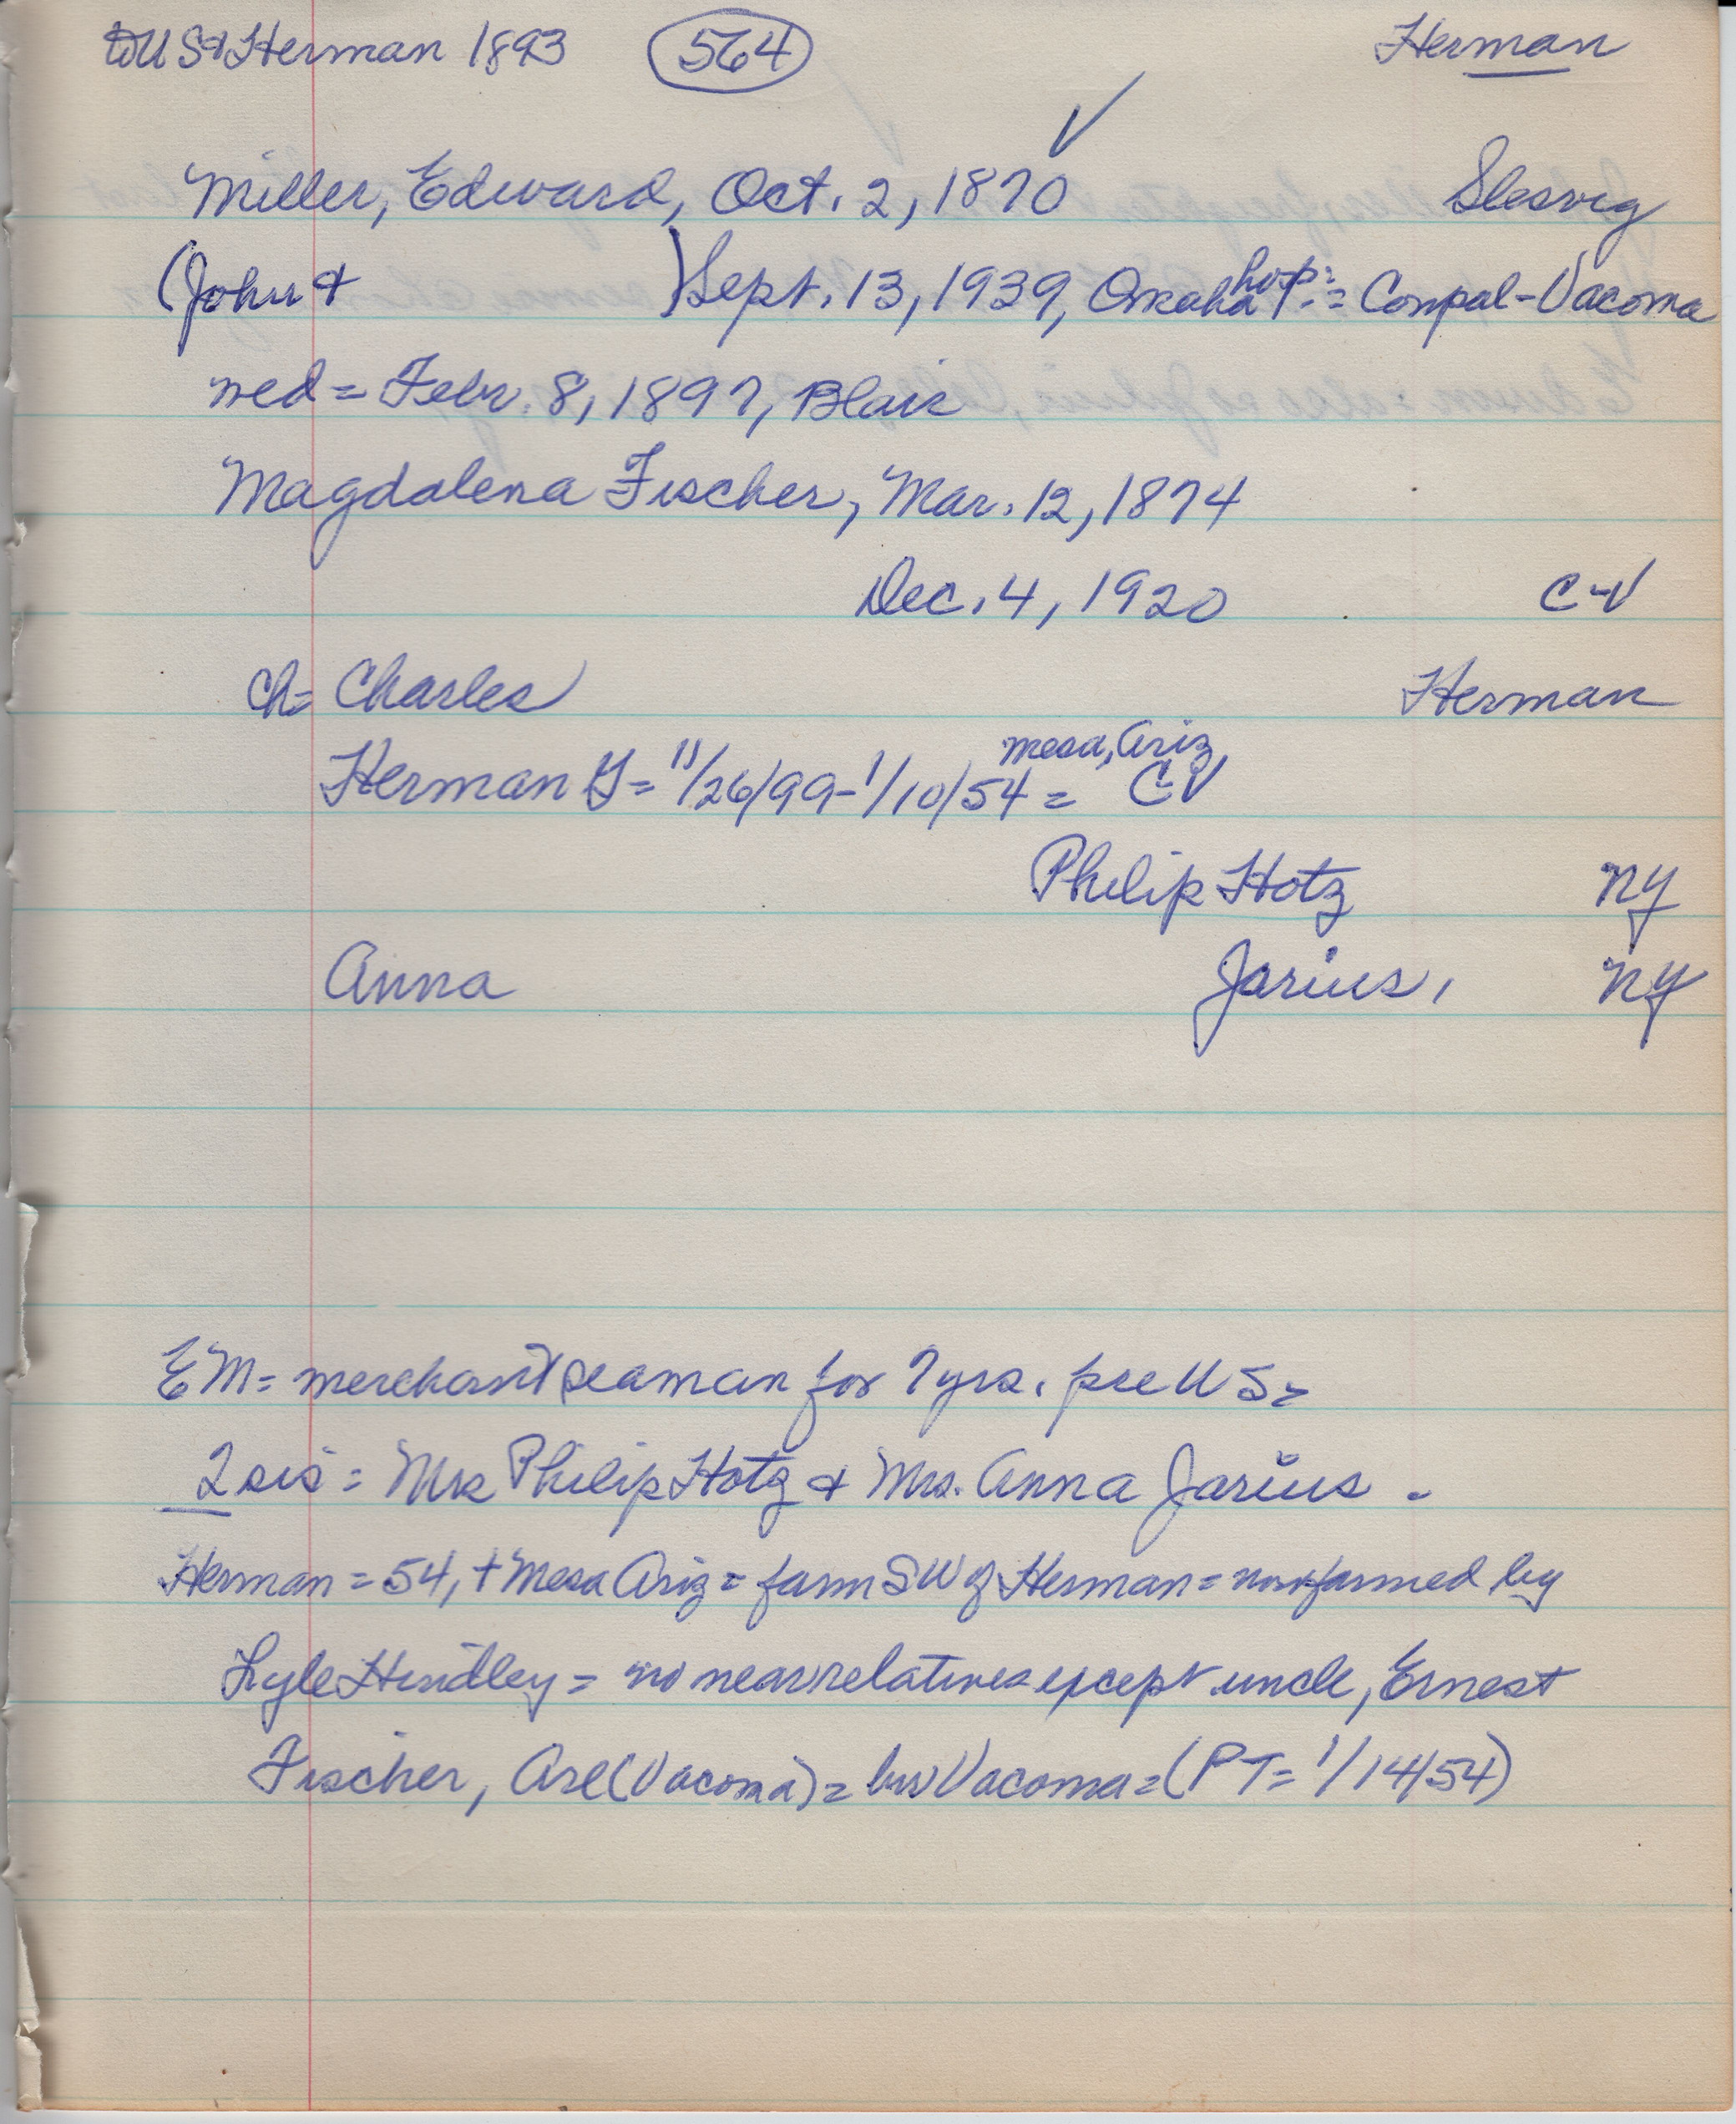 to U S & Herman 1893 564 Herman
Miller, Edward, Oct. 2, 1870 Slesvig
(John & ) Sept. 13, 1939, Omaha hosp. = Compal-Vacoma
wed = Febr. 8, 1897, Blair
Magdalena Fischer, Mar. 12, 1874
Dec. 4, 1920 C-V
ch = Charles Herman
Mesa, Ariz,
Herman G = 11/26/99-1/10/54 = CV
Philip Hotz NY
Anna Jarius, NY
EM = merchant seaman for 7 yrs. pre US =
2 sis = Mrs Philip Hotz & Mrs. Anna Jarius -
Herman = 54, + Mesa Ariz = farm SW of Herman = now farmed by
Lyle Hindley = no near relatives except uncle, Ernest
Fischer, Arl (Vacoma) = bur Vacoma = (PT = 1/14/54)